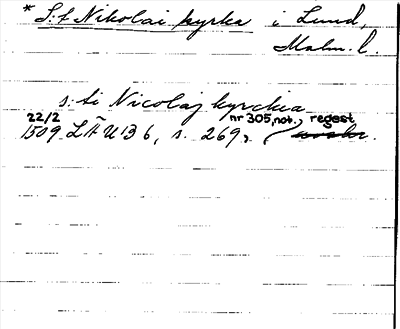 * S:t Nikolai kyrka i Lund,
Malm. l.
s:ti Nicolaj kyrckia
22/2 nr 305, not., regest
1509 LÄU 36, s. 269,